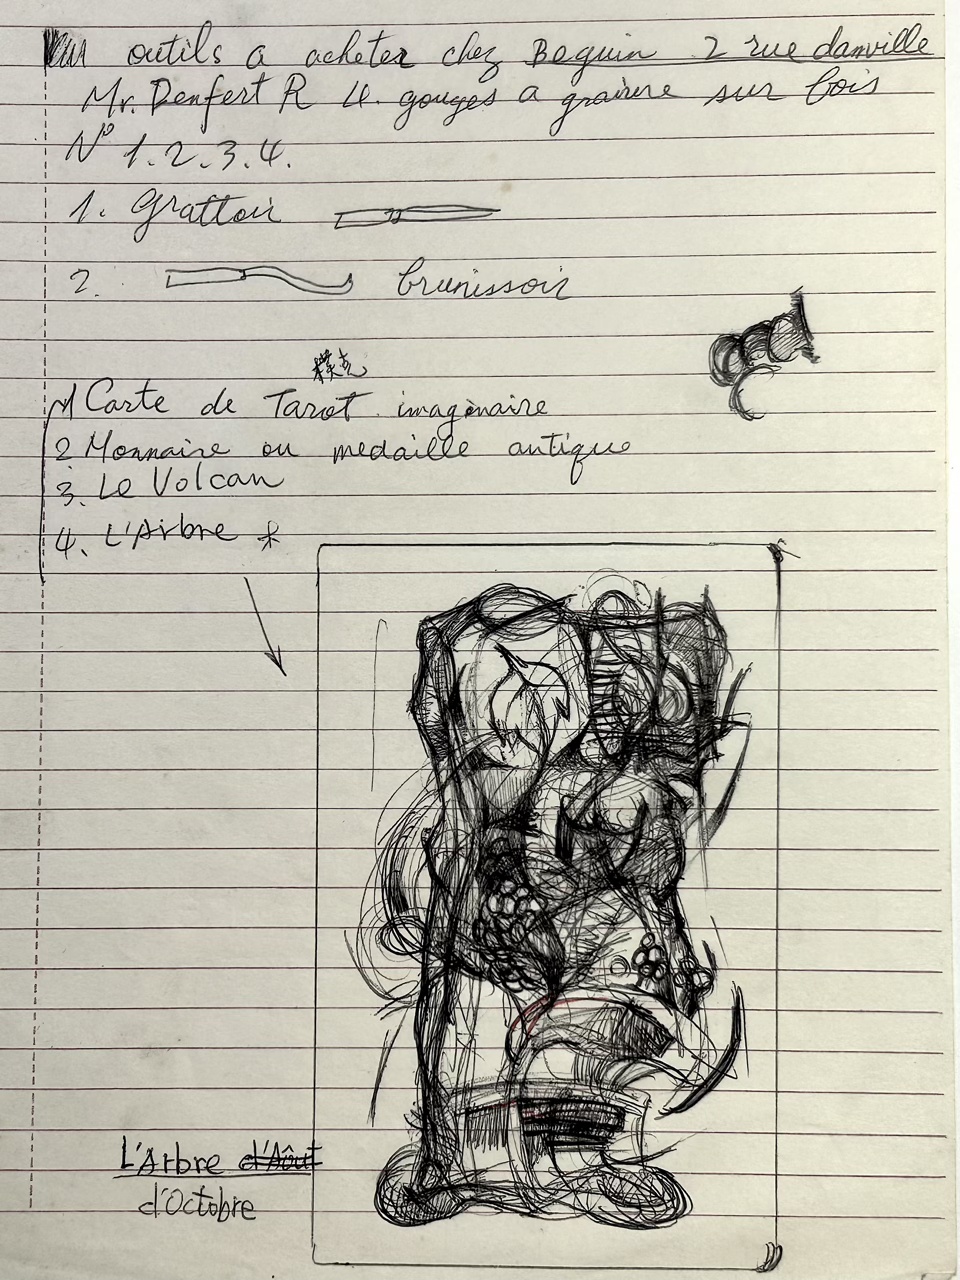 outils a acheter chez Beguin 2 rue danville
Mr. Denfert R 4. gouges a graivre sur bois
N° 1.2.3.4.
1. Grattoir
2. brunissoir
撲克
1 Carte de Tarot imaginaire
2 Monnaire ou medaille antique
3. Le Volcan
4. L'Arbre *
L'Arbre d'Aôut
d'Octobre